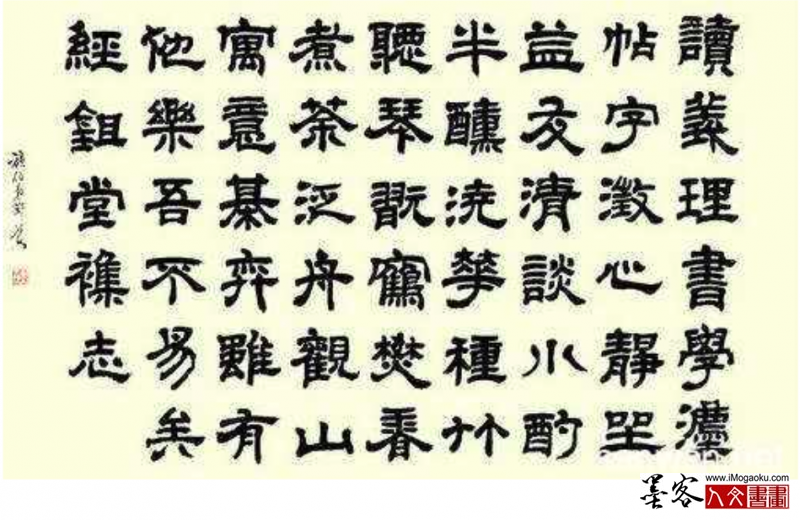 讀義理書學灋
帖字澂心靜坐
益友清談小酌
半醺澆華種竹
聽琴翫鶴焚香
煮茶泛舟觀山
寓意棊弈雖有
他樂吾不易矣
經鉏堂襍志
墨客
www.iMogaoku.com
人文書畫